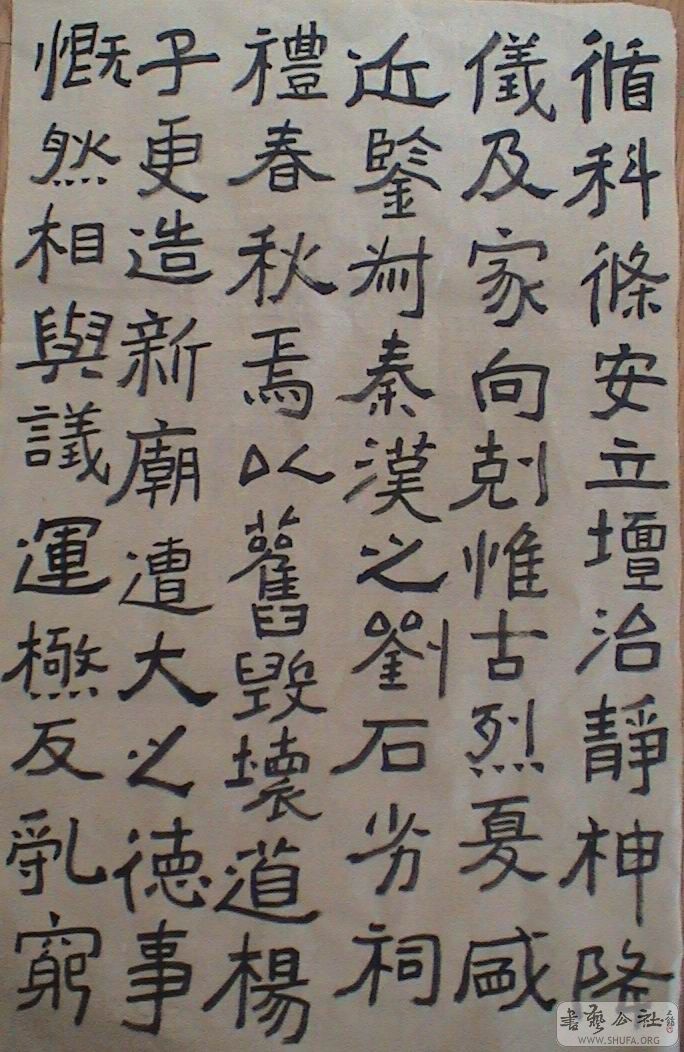 循科條安立壇治靜神隆
儀及家向剋惟古烈夏咸
近鑒秦漢之劉石劣祠
禮春秋焉以舊毀壞道楊
子更造新廟遭大之德事
慨然相與議運極反乳窮
書藝公社
WWW.SHUFA.ORG